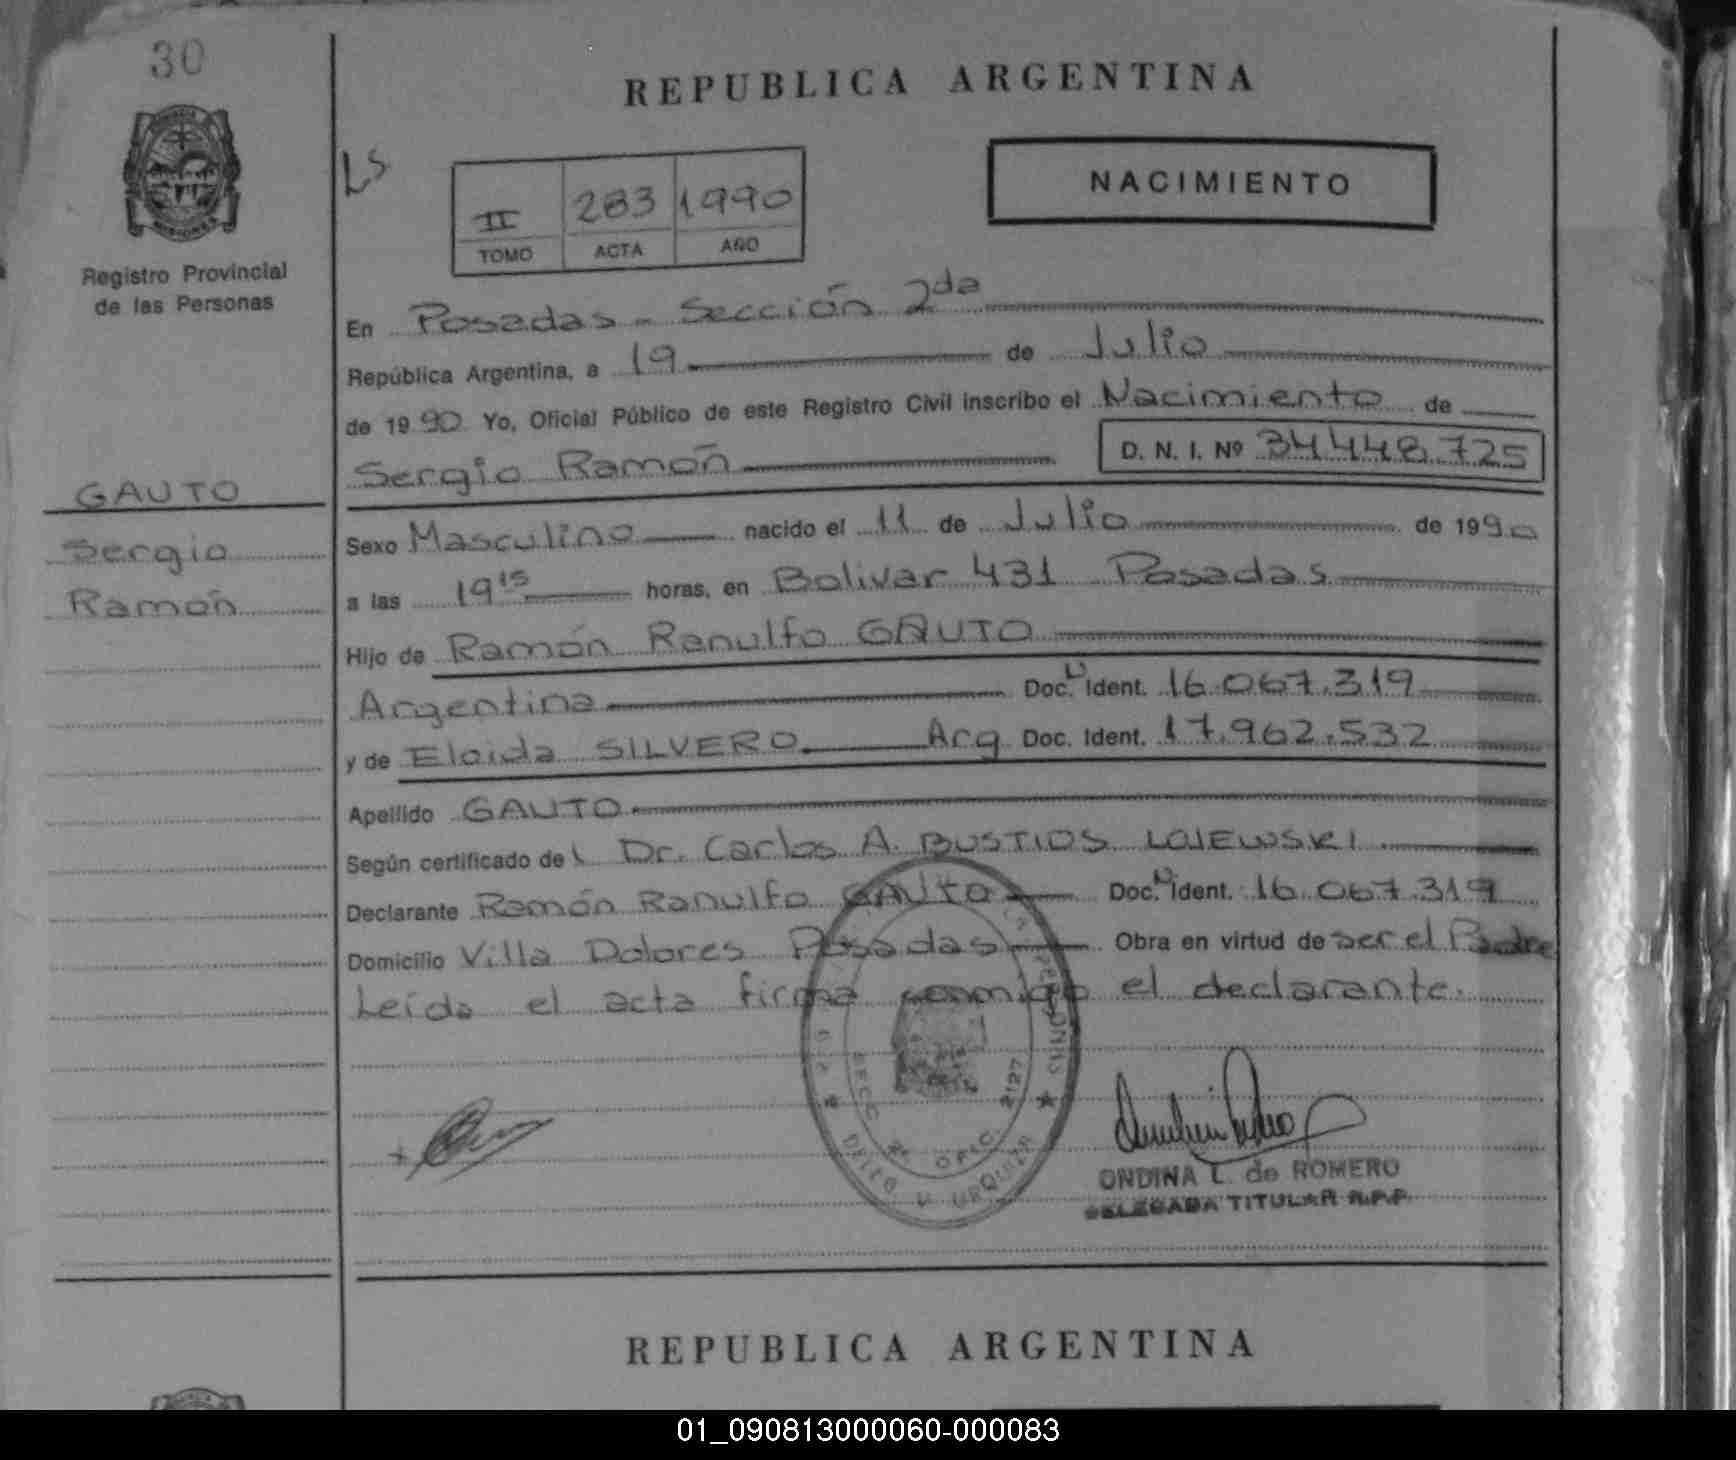 30
REPUBLICA ARGENTINA
LS
NACIMIENTO
II 283 1990
TOMO ACTA AÑO
Registro Provincial
de las Personas
En Posadas - Sección 2da
República Argentina, a 19 de Julio
de 1990 Yo, Oficial Público de este Registro Civil inscribo el Nacimiento de
Sergio Ramón D. N. I. Nº 34.448.725
GAUTO
Sergio
Ramón
Sexo Masculino nacido el 11 de Julio de 1990
a las 19 15 horas, en Bolivar 431 Posadas
Hijo de Ramón Ranulfo GAUTO
Argentina Doc. U Ident. 16.067.319
y de Eloida SILVERO Arg Doc. Ident. 17.962.532
Apellido GAUTO
Según certificado del Dr. Carlos A. BUSTIOS LOJEWSKI
Declarante Ramón Ranulfo GAUTO Doc. U Ident. 16.067.319
Domicilio Villa Dolores Posadas Obra en virtud de ser el Padre
Leída el acta firma conmigo el declarante.
SECC. 2ª OFIC. 2127
DELEG. V. URQUIZA
ONDINA L. de ROMERO
DELEGADA TITULAR R.P.P.
REPUBLICA ARGENTINA
01_090813000060-000083